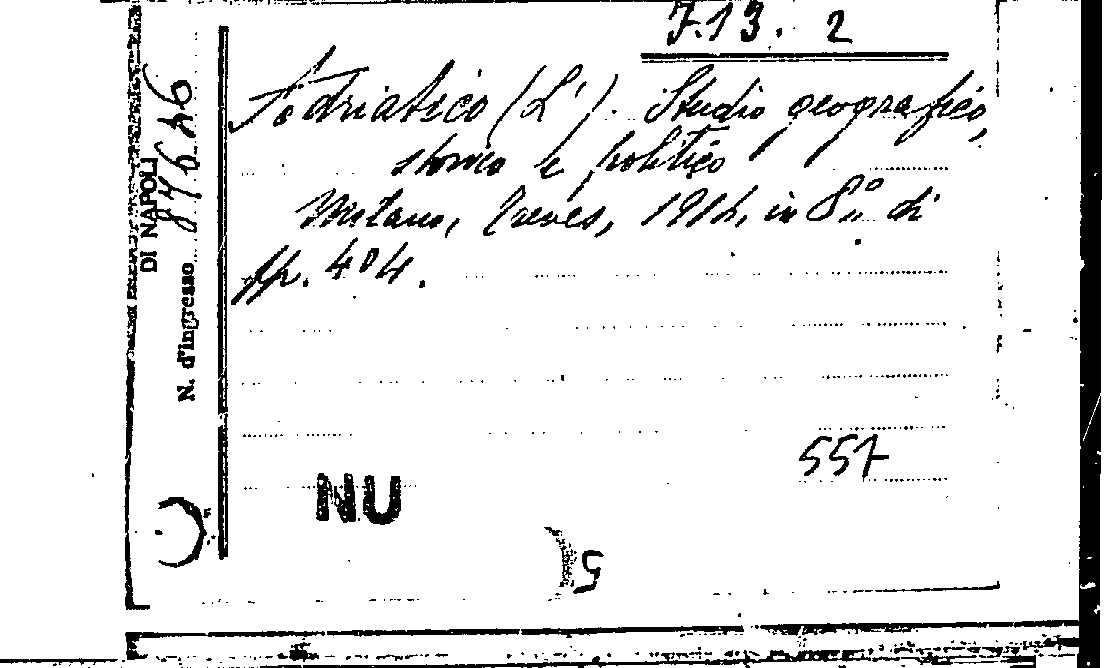 7.13. 2
Adriatico (L'). Studio geografico,
storico e politico
Milano, Treves, 1914, in 8º di
pp. 404.
557
NU
5
DI NAPOLI
N. d'ingresso